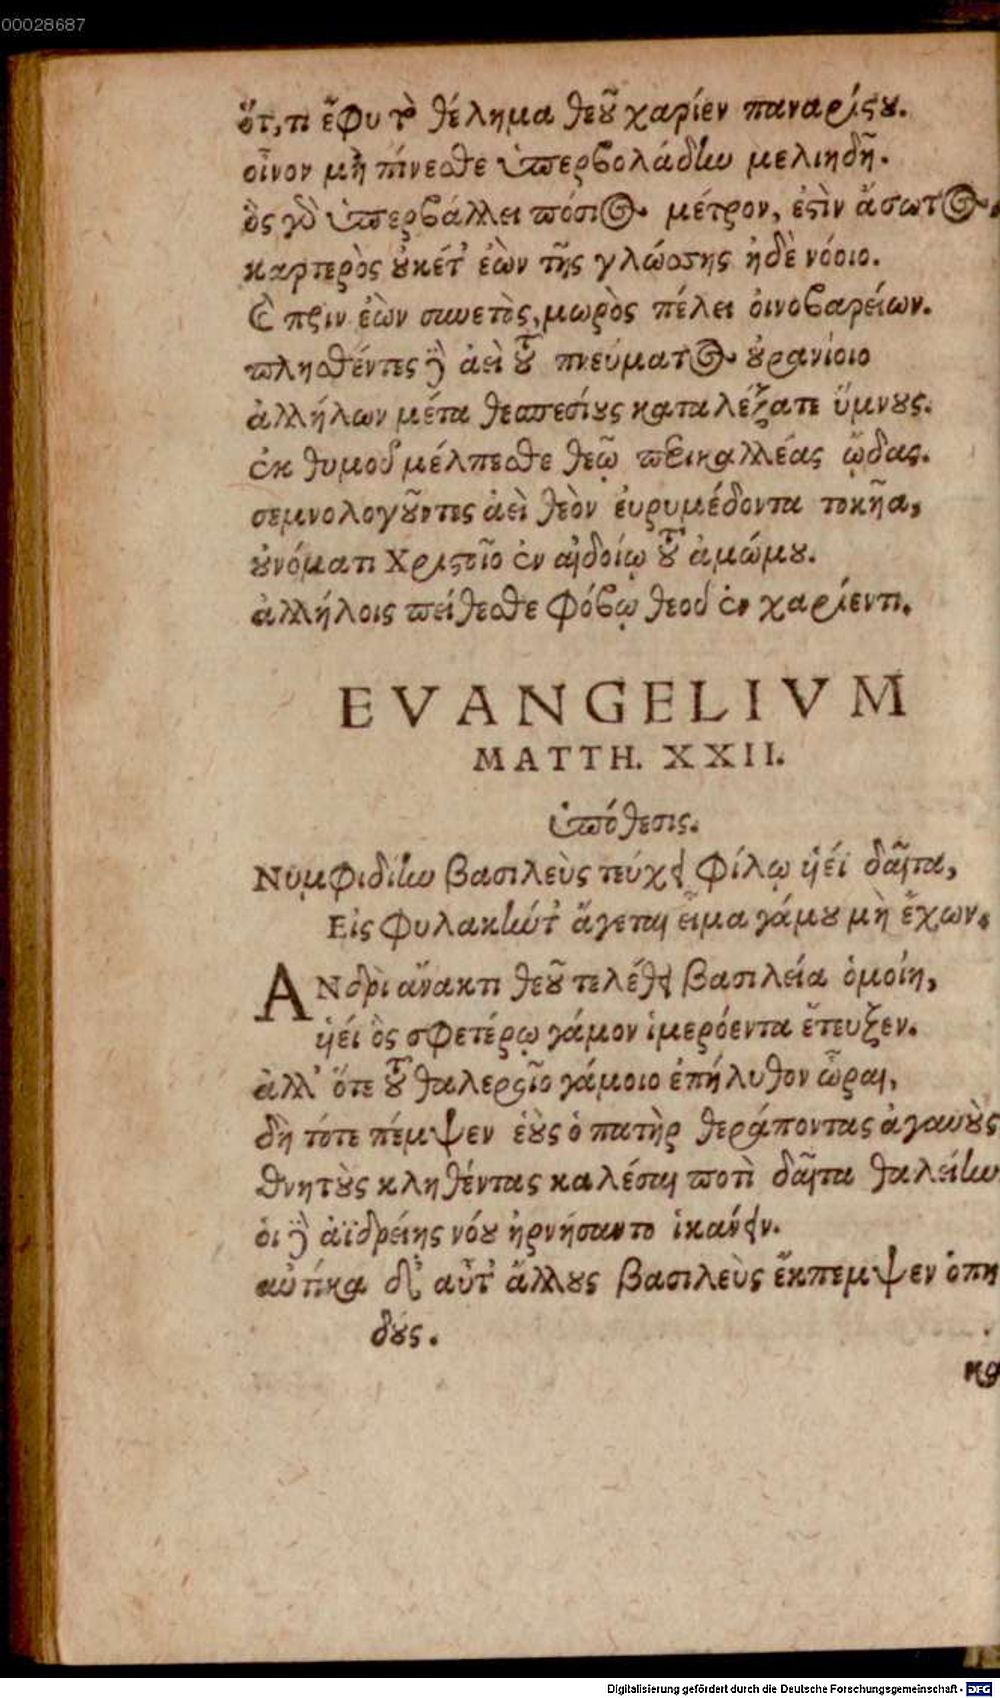 00028687
ὅτ,τι ἔφυ τὸ θέλημα θεοῦ χαρίεν παναρίστου.
οἶνον μὴ πίνεσθε ὑπερβολάδην μελιηδῆ.
ὃς γὸ ὑπερβάλλει πόσιος μέτρον, ἐστὶν ἄσωτος,
καρτερὸς οὐκέτ᾽ ἐὼν τῆς γλώσσης ἠδὲ νόοιο.
Ὁ πρὶν ἐὼν συνετὸς, μωρὸς πέλει οἰνοβαρείων.
πλησθέντες δὲ ἀεὶ τοῦ πνεύματος οὐρανίοιο
ἀλλήλων μέτα θεσπεσίους καταλέξατε ὕμνους.
ἐκ θυμοῦ μέλπεσθε θεῷ περικαλλέας ᾠδας.
σεμνολογοῦντες ἀεὶ θεὸν εὐρυμέδοντα τοκῆα,
οὐνόματι Χριστοῖο ἐν αἰδοίῳ τοῦ ἀμώμου.
ἀλλήλοις πείθεσθε φόβῳ θεοῦ ἐν χαρίεντι.
EVANGELIVM
MATTH. XXII.
ὑπόθεσις.
Νυμφιδίην βασιλεὺς τεύχει φίλῳ υἱέϊ δαῖτα,
Εἰς φυλακὴν τ᾽ ἄγεται εἷμα γάμου μὴ ἔχων.
ΑΝδρὶ ἄνακτι θεοῦ τελέθει βασιλεία ὁμοίη,
υἱέϊ ὃς σφετέρῳ γάμον ἱμερόεντα ἔτευξεν.
ἀλλ᾽ ὅτε τοῦ θαλεροῖο γάμοιο ἐπήλυθον ὧραι,
δὴ τότε πέμψεν ἑοὺς ὁ πατὴρ θεράποντας ἀγαυοὺς
θνητοὺς κληθέντας καλέσαι ποτὶ δαῖτα θαλείην
οἱ δὲ ἀϊδρείης νόου ἠρνήσαντο ἱκάνειν.
αὐτίκα δ᾽ αὖτ᾽ ἄλλους βασιλεὺς ἔκπεμψεν ὀπη
δούς.
κα
Digitalisierung gefördert durch die Deutsche Forschungsgemeinschaft - DFG